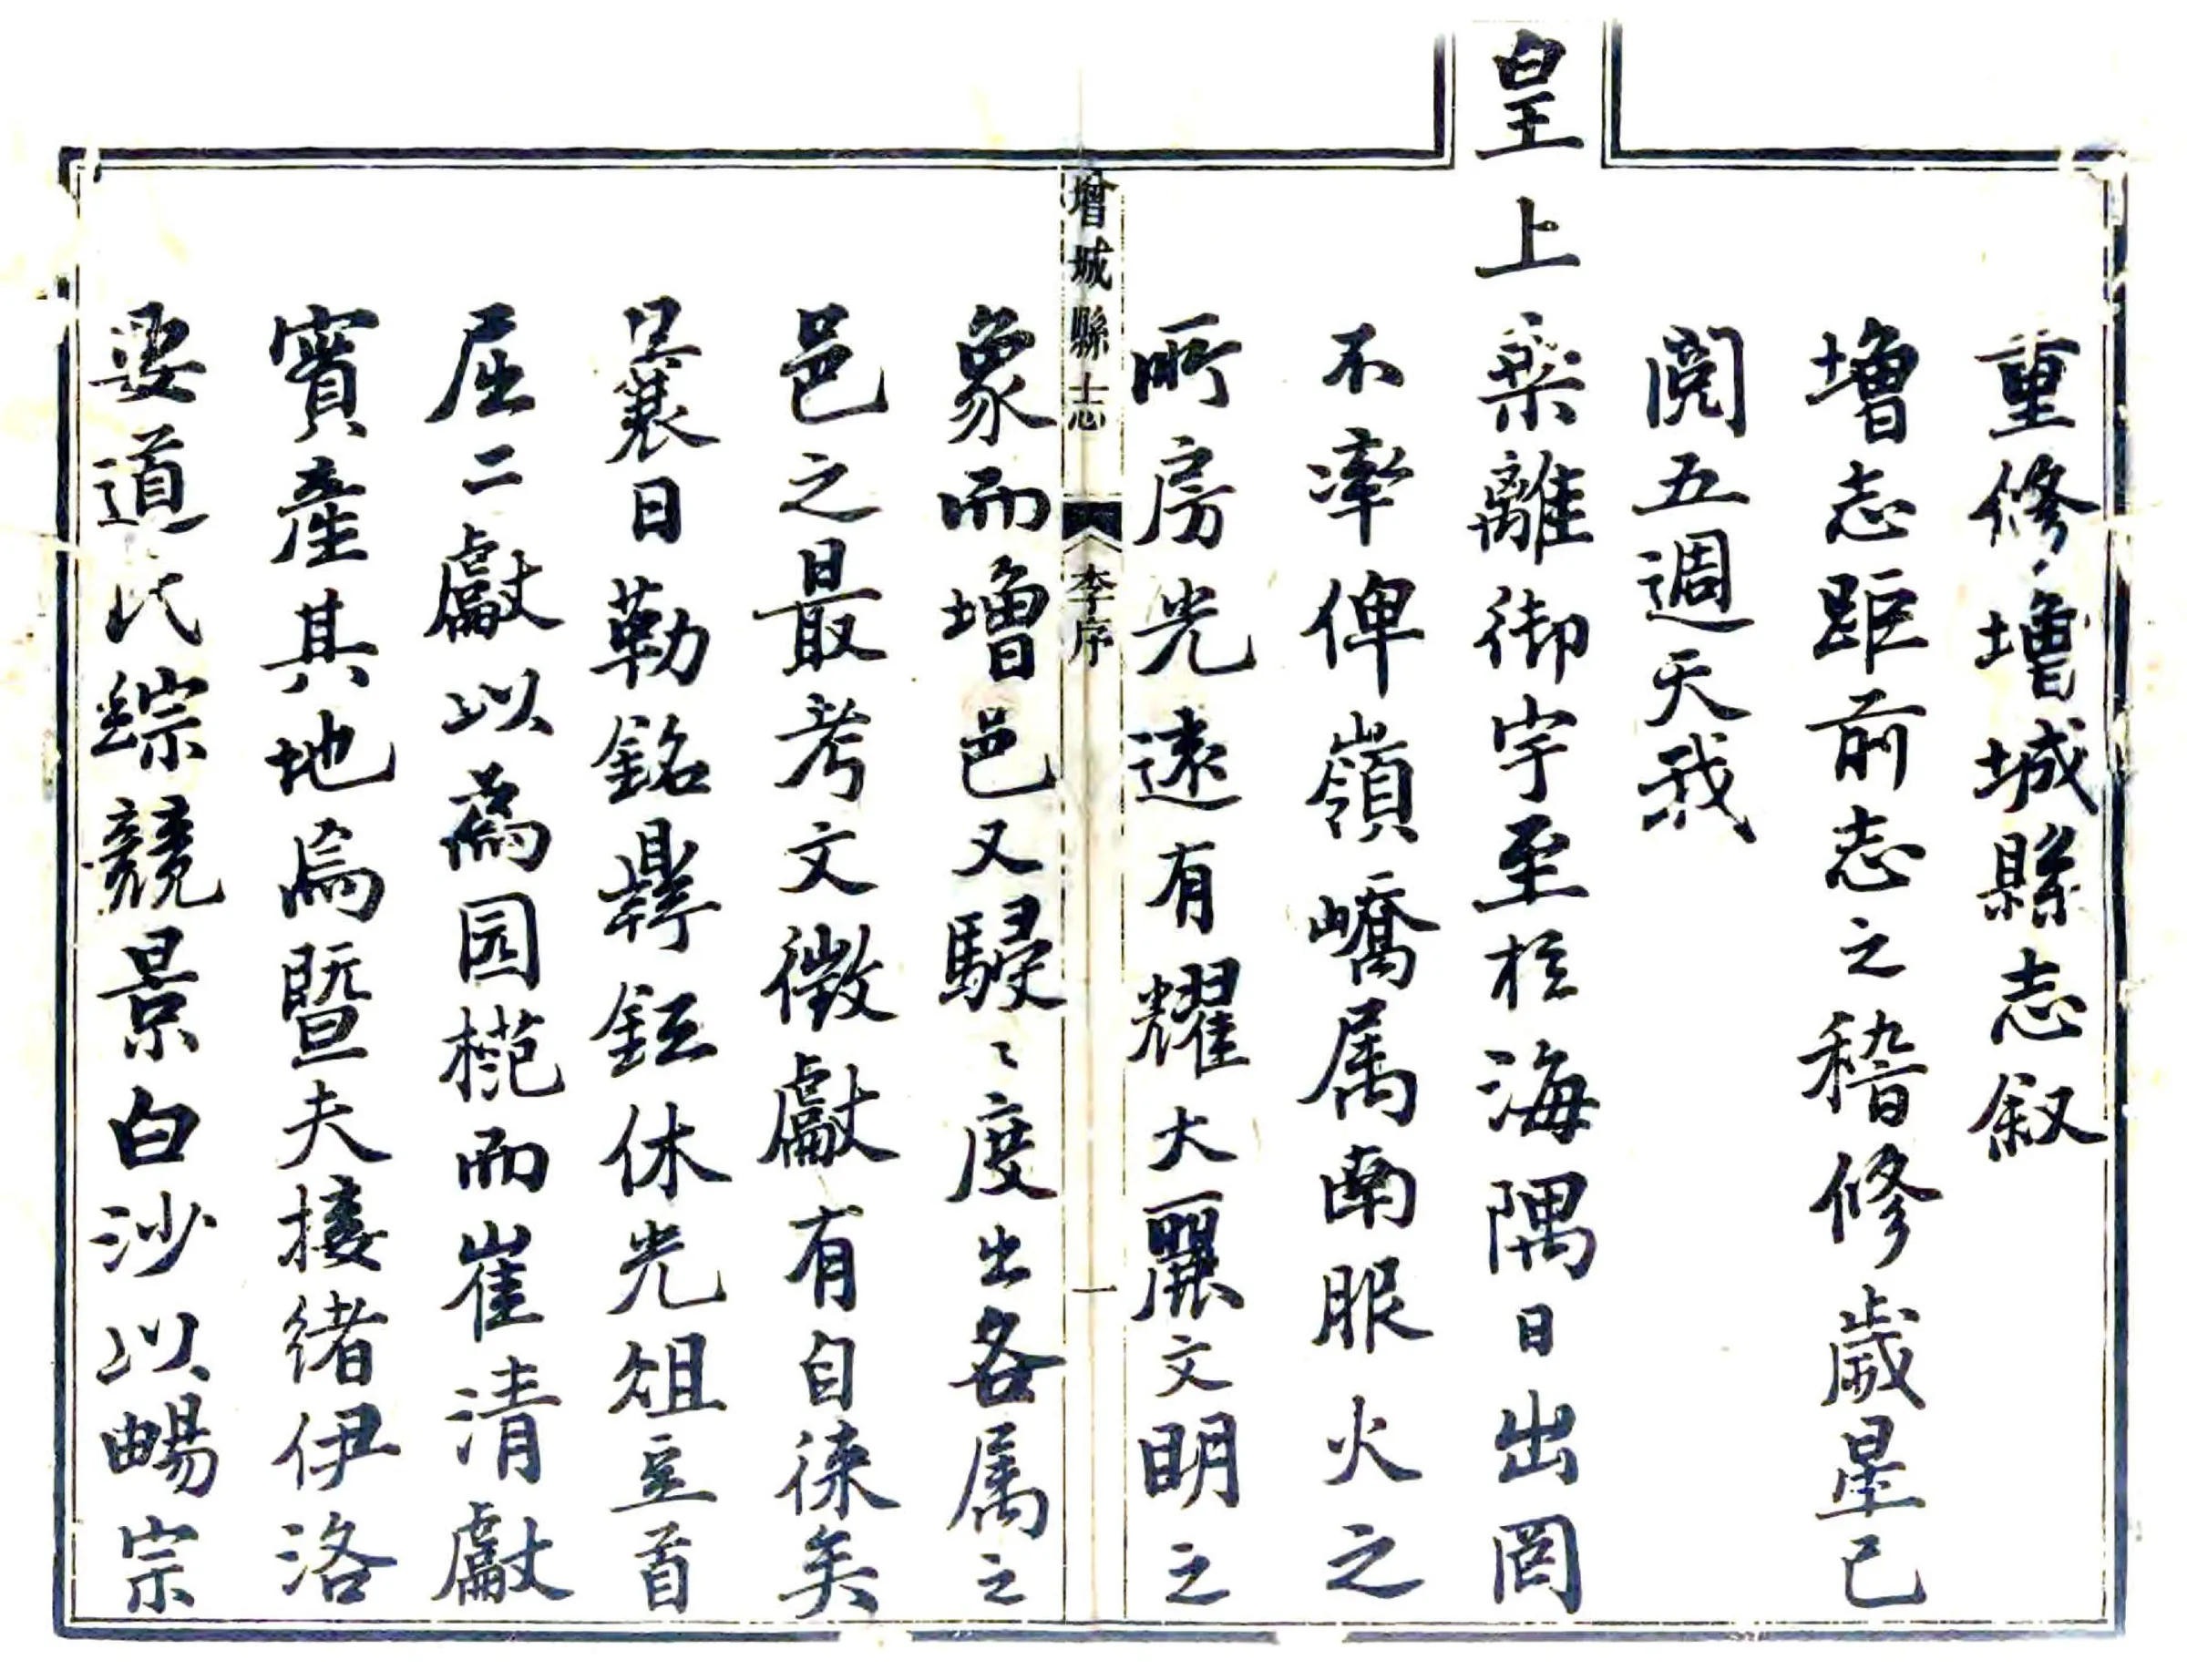 重修增城縣志叙
增志距前志之稽修歲星已
閱五週天我
皇上乘離御宇至於海隅日出罔
不率俾嶺嶠属南服火之
所房光遠有耀大麗文明之
象而增邑又駸〻度出各属之
邑之最考文徵獻有自徠矣
曩日勒銘彝鉦休光俎豆首
屈二獻以為园而崔清獻
實產其地焉暨夫接緒伊洛
道氏綜競景白沙以暢宗
增城縣志 李序 一